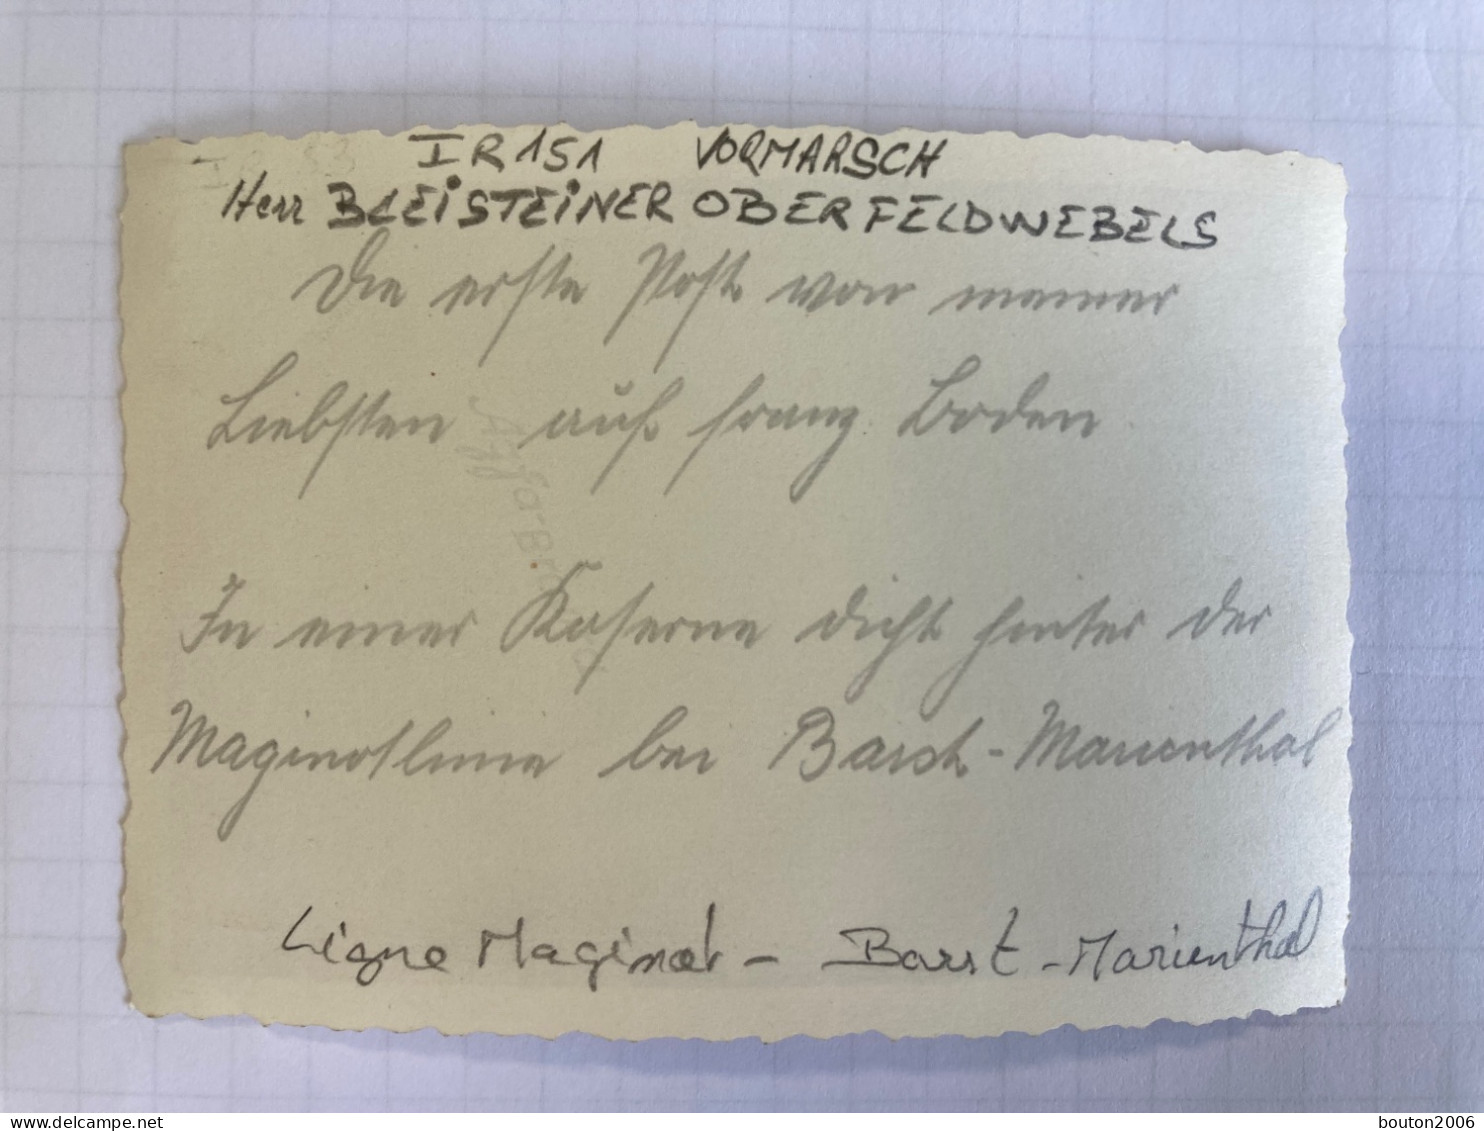 IR 151 VORMARSCH
Herr BLEISTEINER OBERFELDWEBELS
Die erste Post von meiner
Liebsten auf franz. Boden
In einer Kaserne dicht hinter der
Maginotlinie bei Barst-Marienthal
Ligne Maginot - Barst - Marienthal
delcampe.net
bouton2006